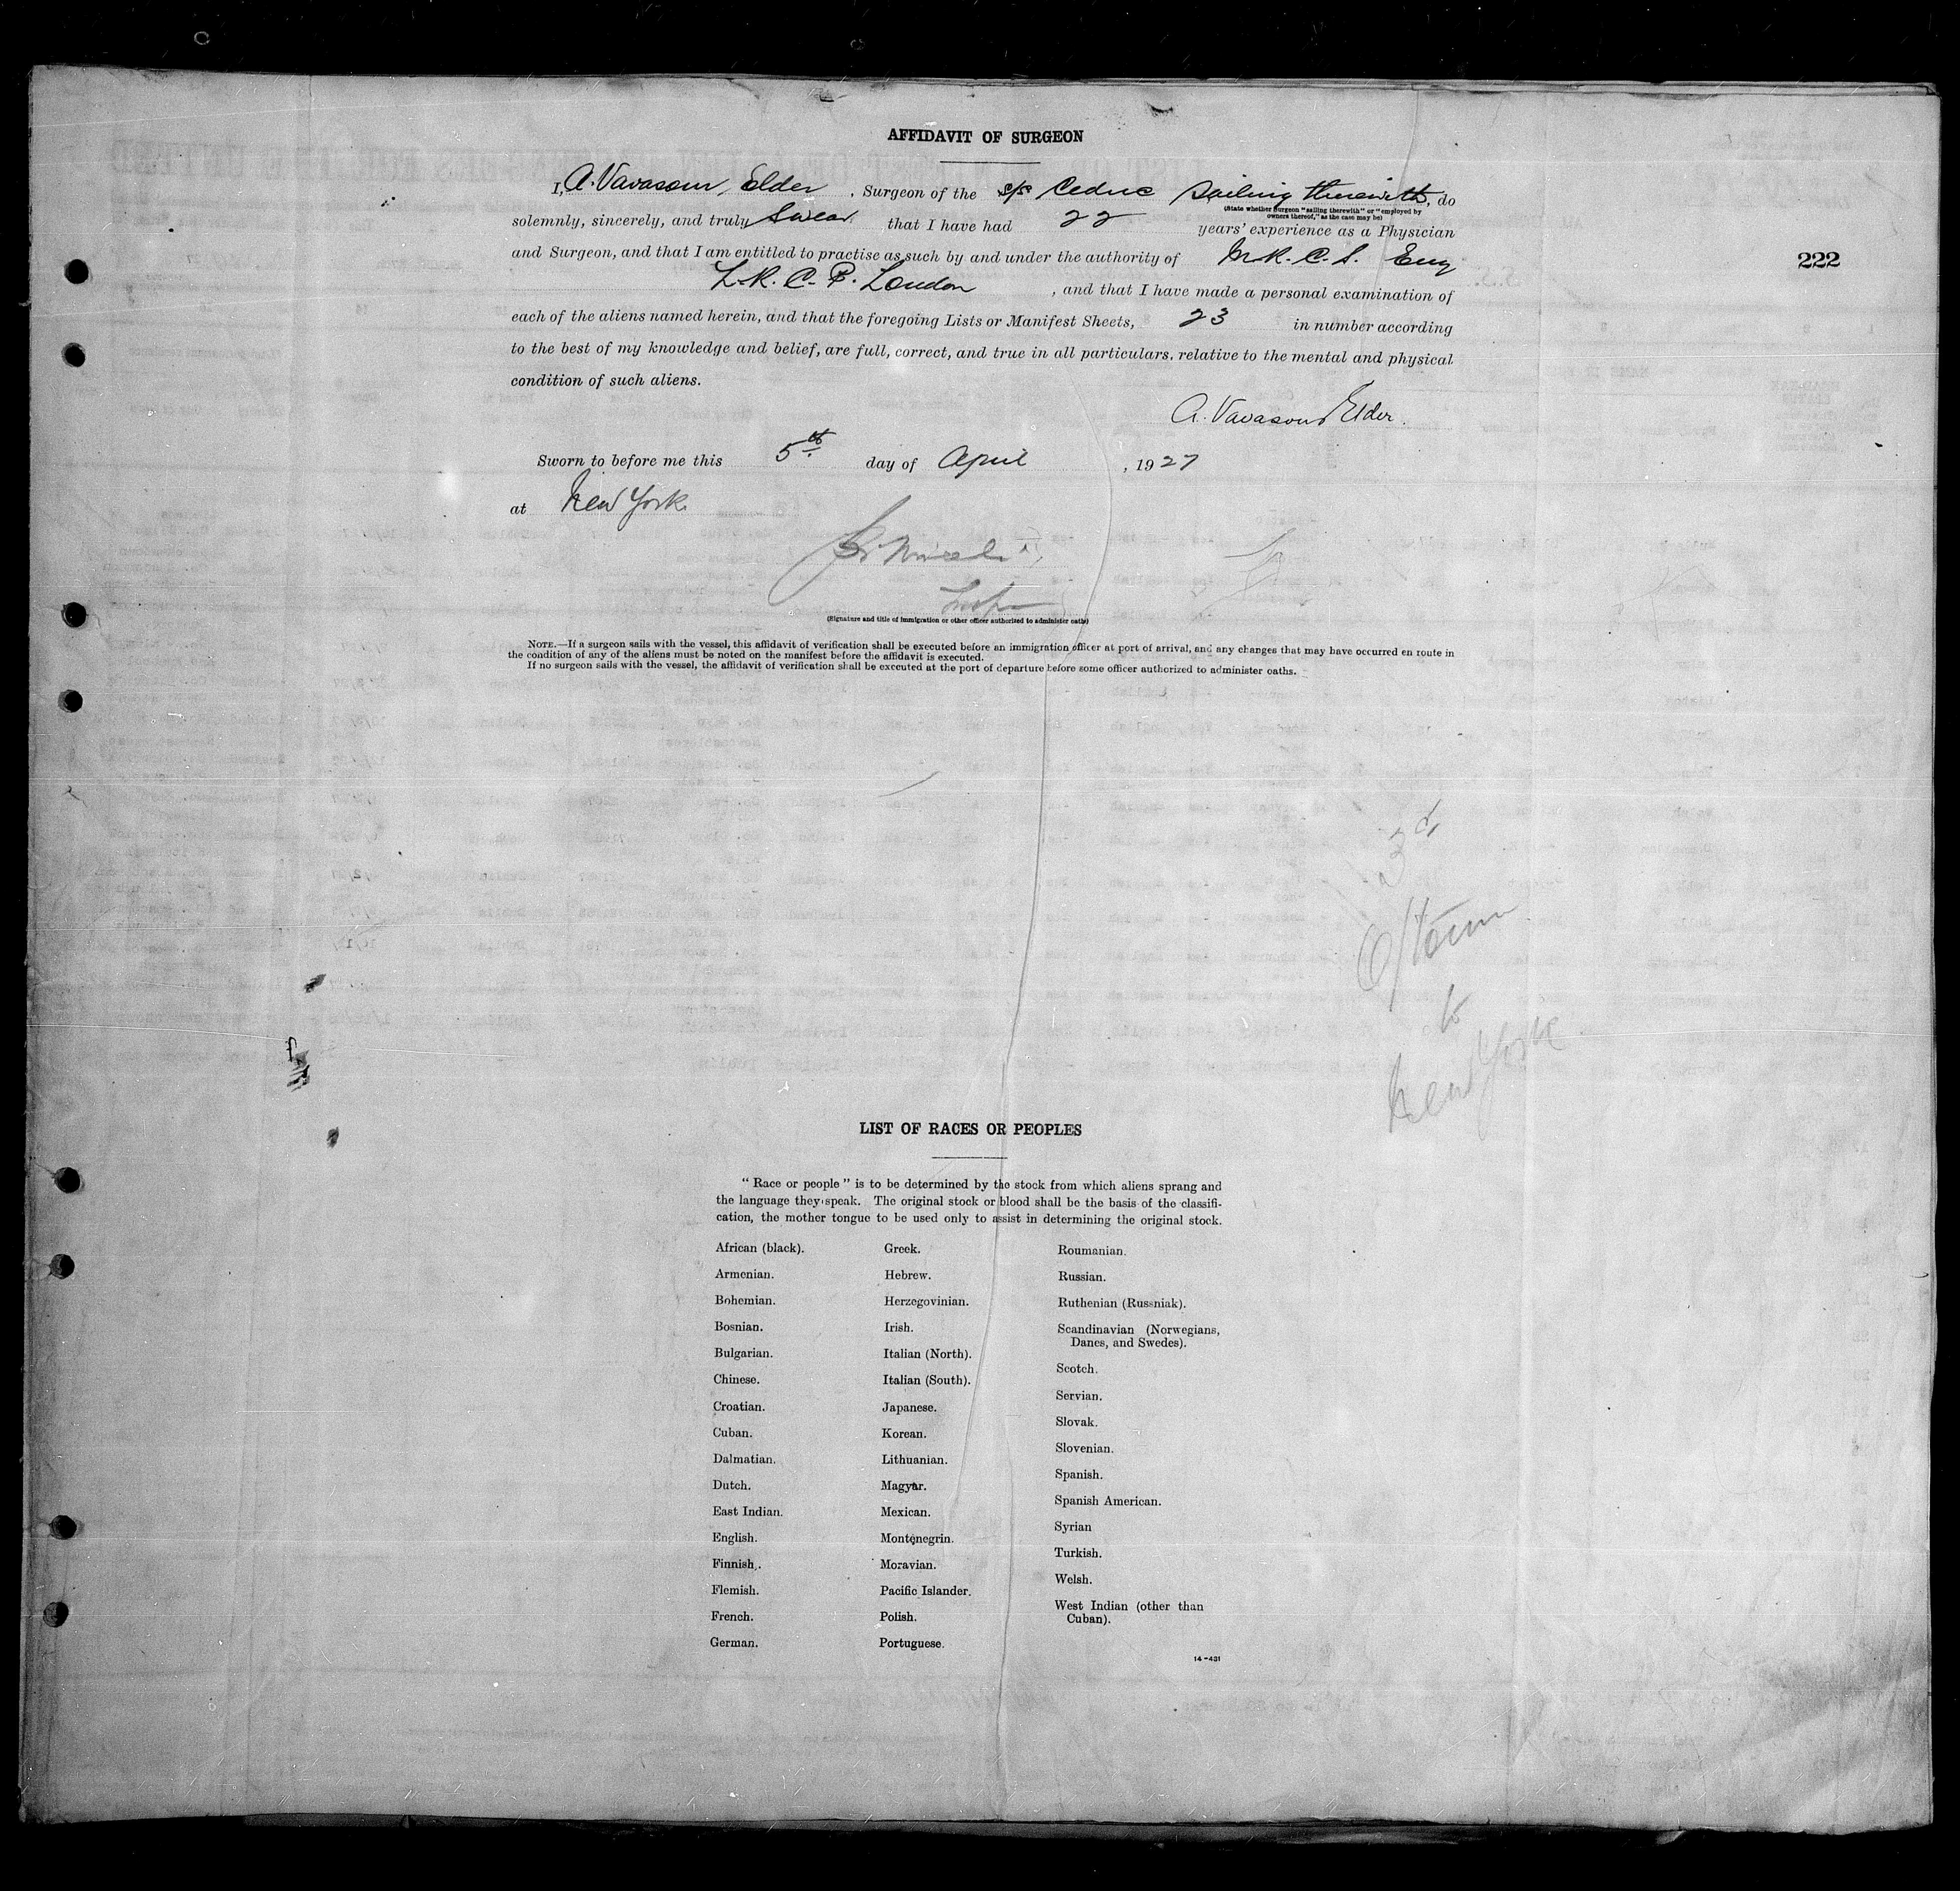 AFFIDAVIT OF SURGEON
I, A. Vavasour Elder, Surgeon of the s/s Cedric sailing therewith, do
(State whether Surgeon "sailing therewith" or "employed by
owners thereof," as the case may be)
solemnly, sincerely, and truly swear that I have had 22 years' experience as a Physician
and Surgeon, and that I am entitled to practise as such by and under the authority of M.R.C.S. Eng
L.R.C.P. London, and that I have made a personal examination of
each of the aliens named herein, and that the foregoing Lists or Manifest Sheets, 23 in number according
to the best of my knowledge and belief, are full, correct, and true in all particulars, relative to the mental and physical
condition of such aliens.
222
A. Vavasour Elder.
Sworn to before me this 5th day of April, 1927
at New York
(Signature and title of immigration or other officer authorized to administer oaths)
NOTE.—If a surgeon sails with the vessel, this affidavit of verification shall be executed before an immigration officer at port of arrival, and any changes that may have occurred en route in
the condition of any of the aliens must be noted on the manifest before the affidavit is executed.
If no surgeon sails with the vessel, the affidavit of verification shall be executed at the port of departure before some officer authorized to administer oaths.
3d
Q/town
to
New York
LIST OF RACES OR PEOPLES
"Race or people" is to be determined by the stock from which aliens sprang and
the language they speak. The original stock or blood shall be the basis of the classifi-
cation, the mother tongue to be used only to assist in determining the original stock.
African (black).
Armenian.
Bohemian.
Bosnian.
Bulgarian.
Chinese.
Croatian.
Cuban.
Dalmatian.
Dutch.
East Indian.
English.
Finnish.
Flemish.
French.
German.
Greek.
Hebrew.
Herzegovinian.
Irish.
Italian (North).
Italian (South).
Japanese.
Korean.
Lithuanian.
Magyar.
Mexican.
Montenegrin.
Moravian.
Pacific Islander.
Polish.
Portuguese.
Roumanian.
Russian.
Ruthenian (Russniak).
Scandinavian (Norwegians,
Danes, and Swedes).
Scotch.
Servian.
Slovak.
Slovenian.
Spanish.
Spanish American.
Syrian
Turkish.
Welsh.
West Indian (other than
Cuban).
14-431